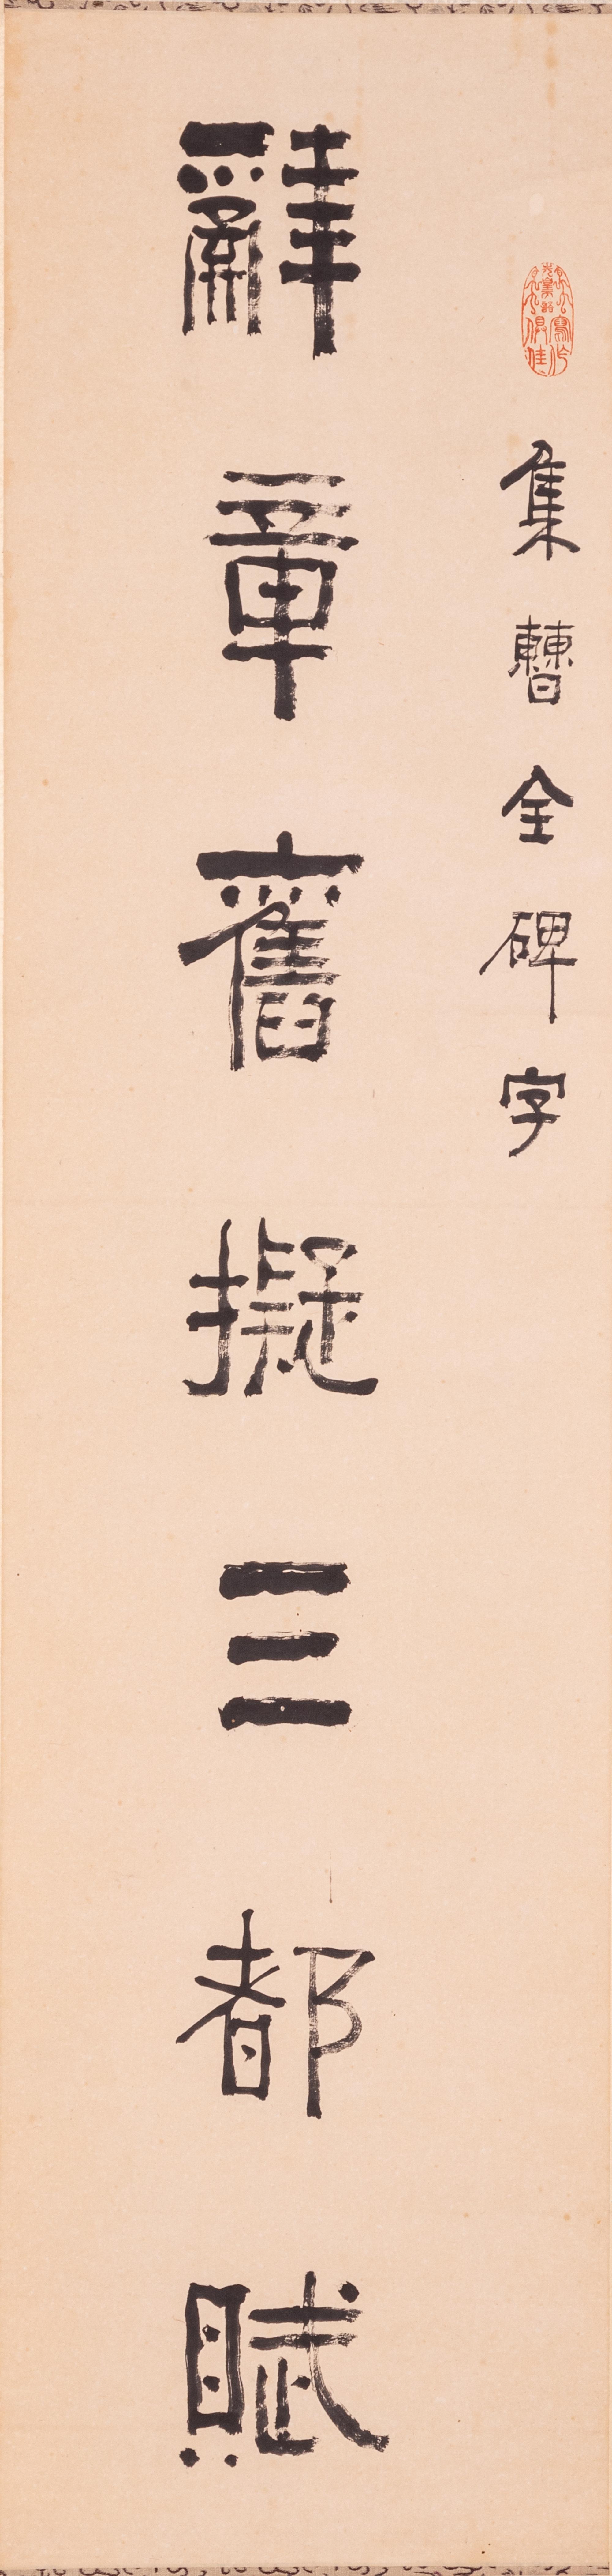 集曹全碑字
辭章舊擬三都賦